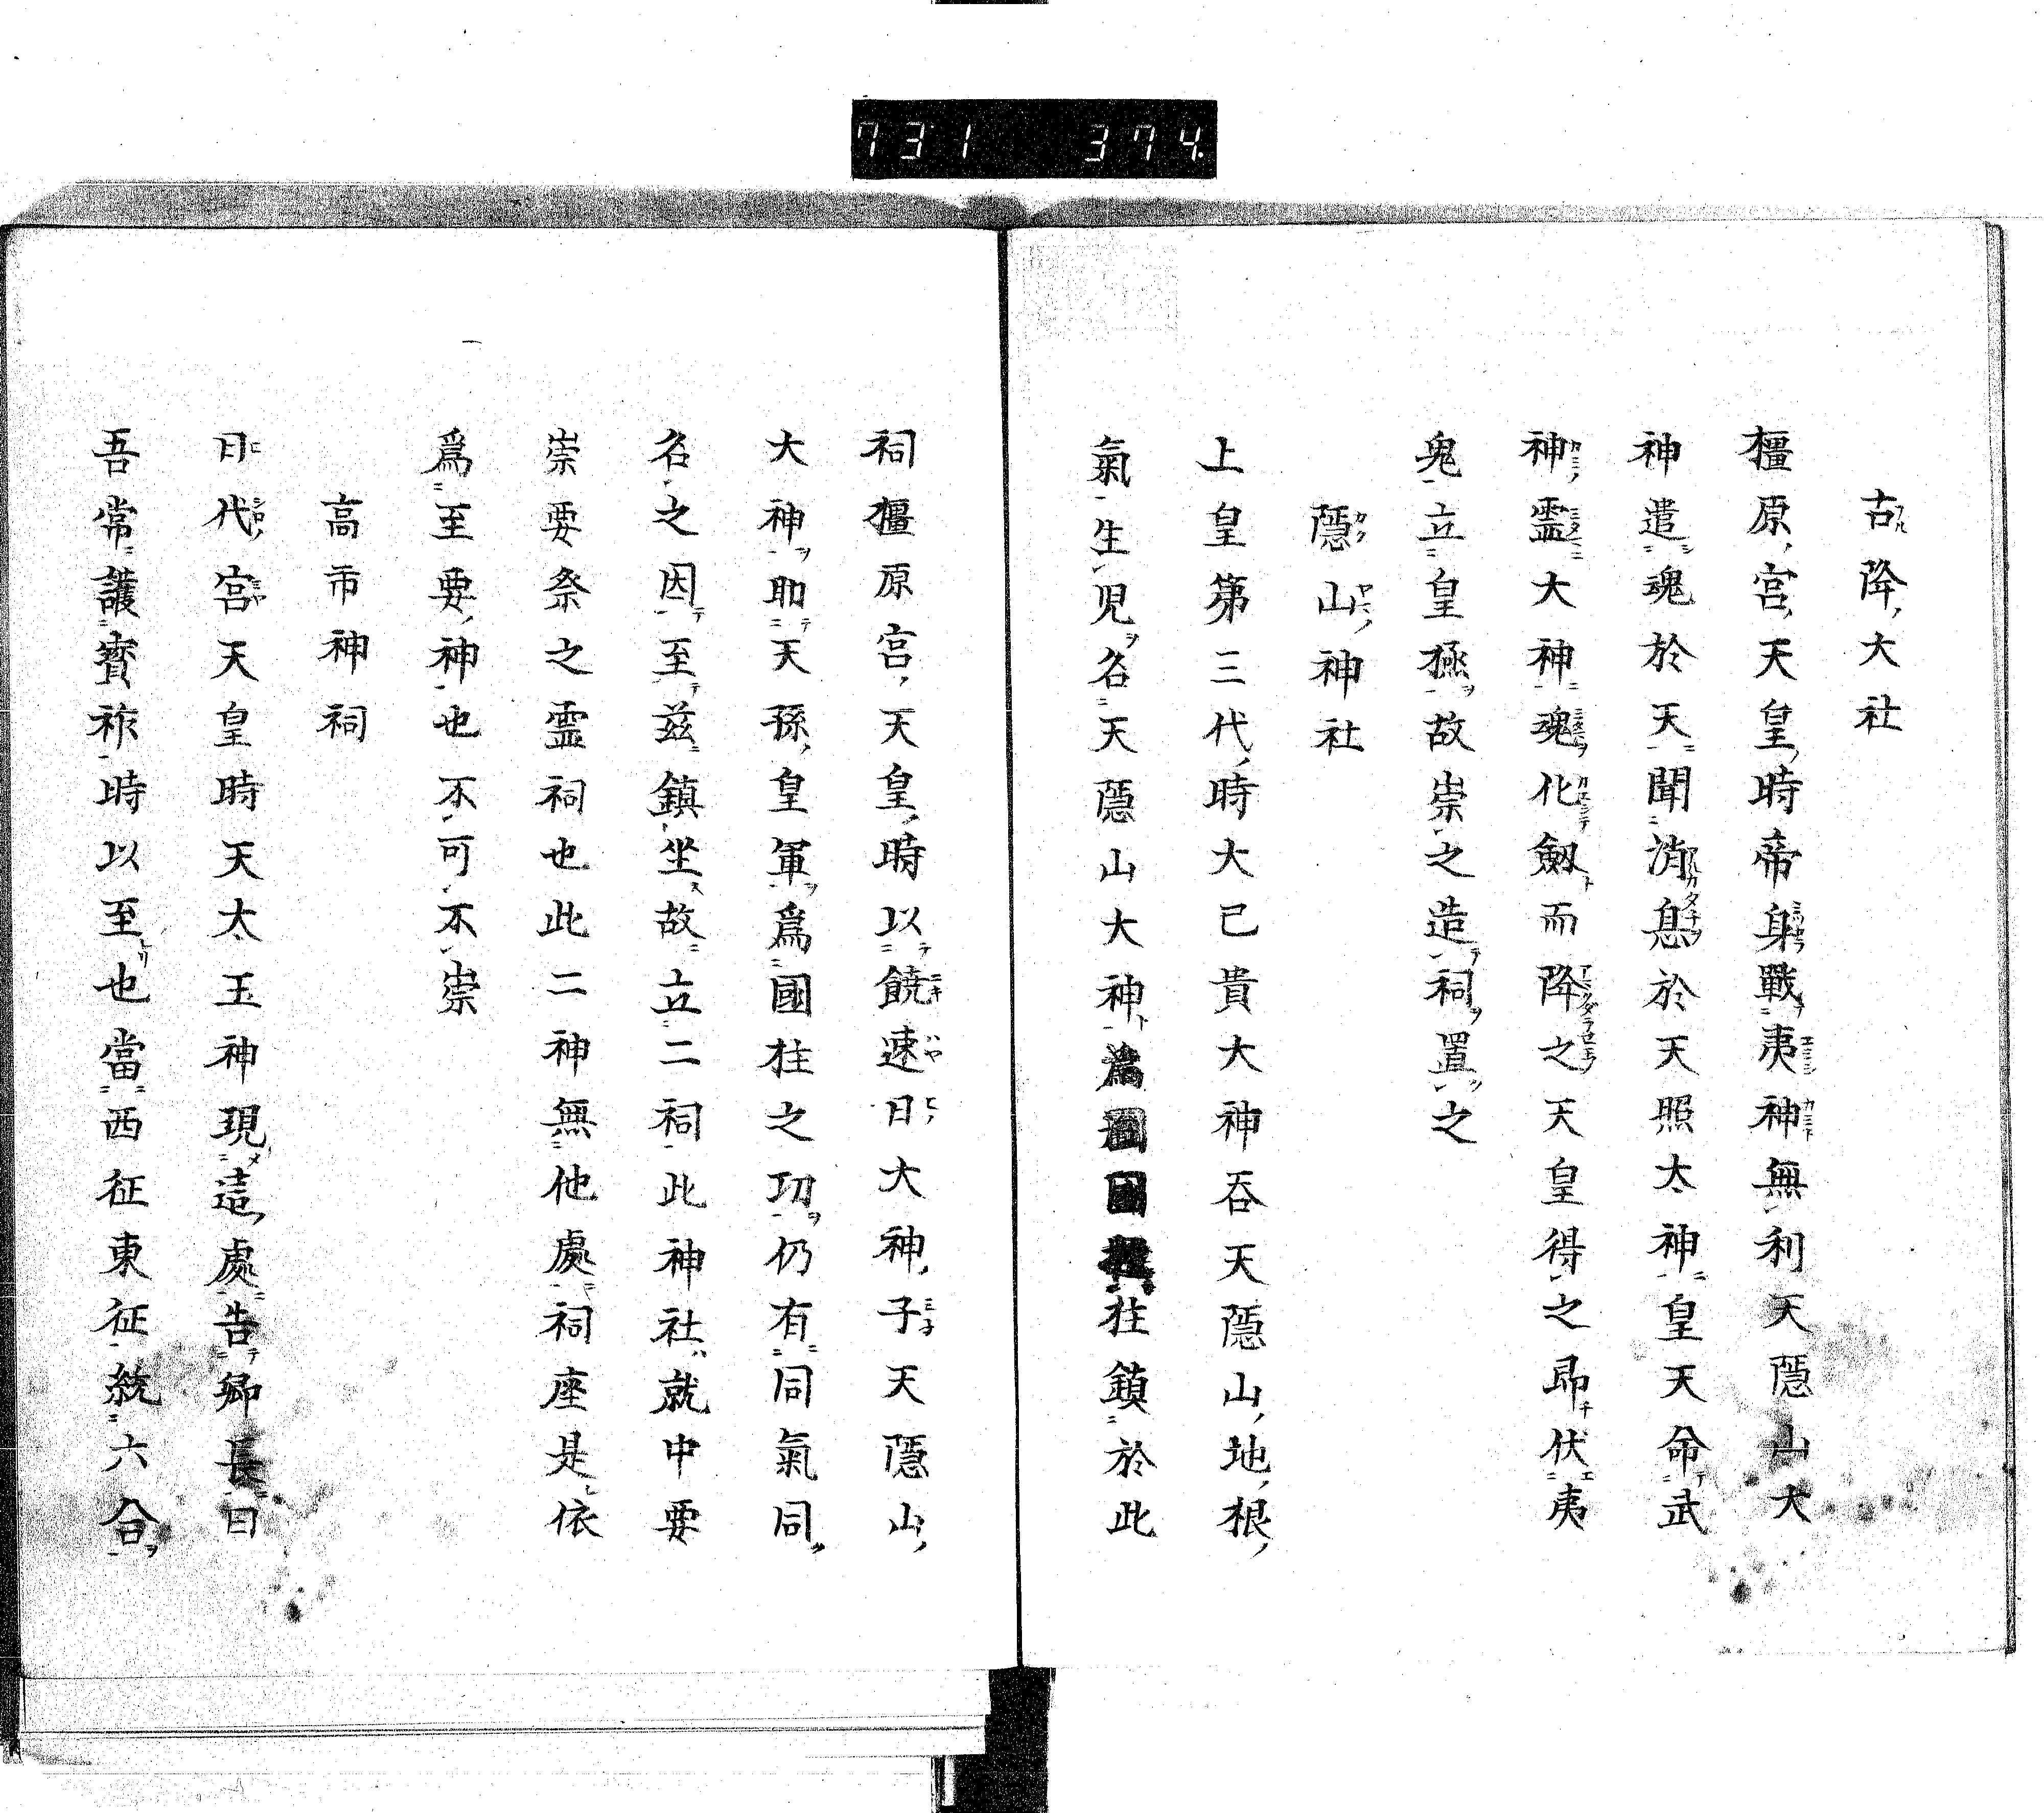 731 374
古降大社
橿原宮天皇時帝躬戰夷神無利天隱山大
神遣魂於天聞消息於天照大神皇天命武
神霊大神魂化劔而降之天皇得之即伏夷
鬼立皇極故崇之造祠置之
隱山神社
上皇第三代時大己貴大神吞天隱山地根
氣生児名天隱山大神為國柱鎮於此
祠橿原宮天皇時以饒速日大神子天隱山
大神助天孫皇軍為國柱之功仍有同氣同
名之因至茲鎮坐故立二祠此神社就中要
崇要祭之霊祠也此二神無他處祠座是依
為至要神也不可不崇
高市神祠
日代宮天皇時天大玉神現這處告郷長曰
吾常護寳祚時以至也當西征東征統六合